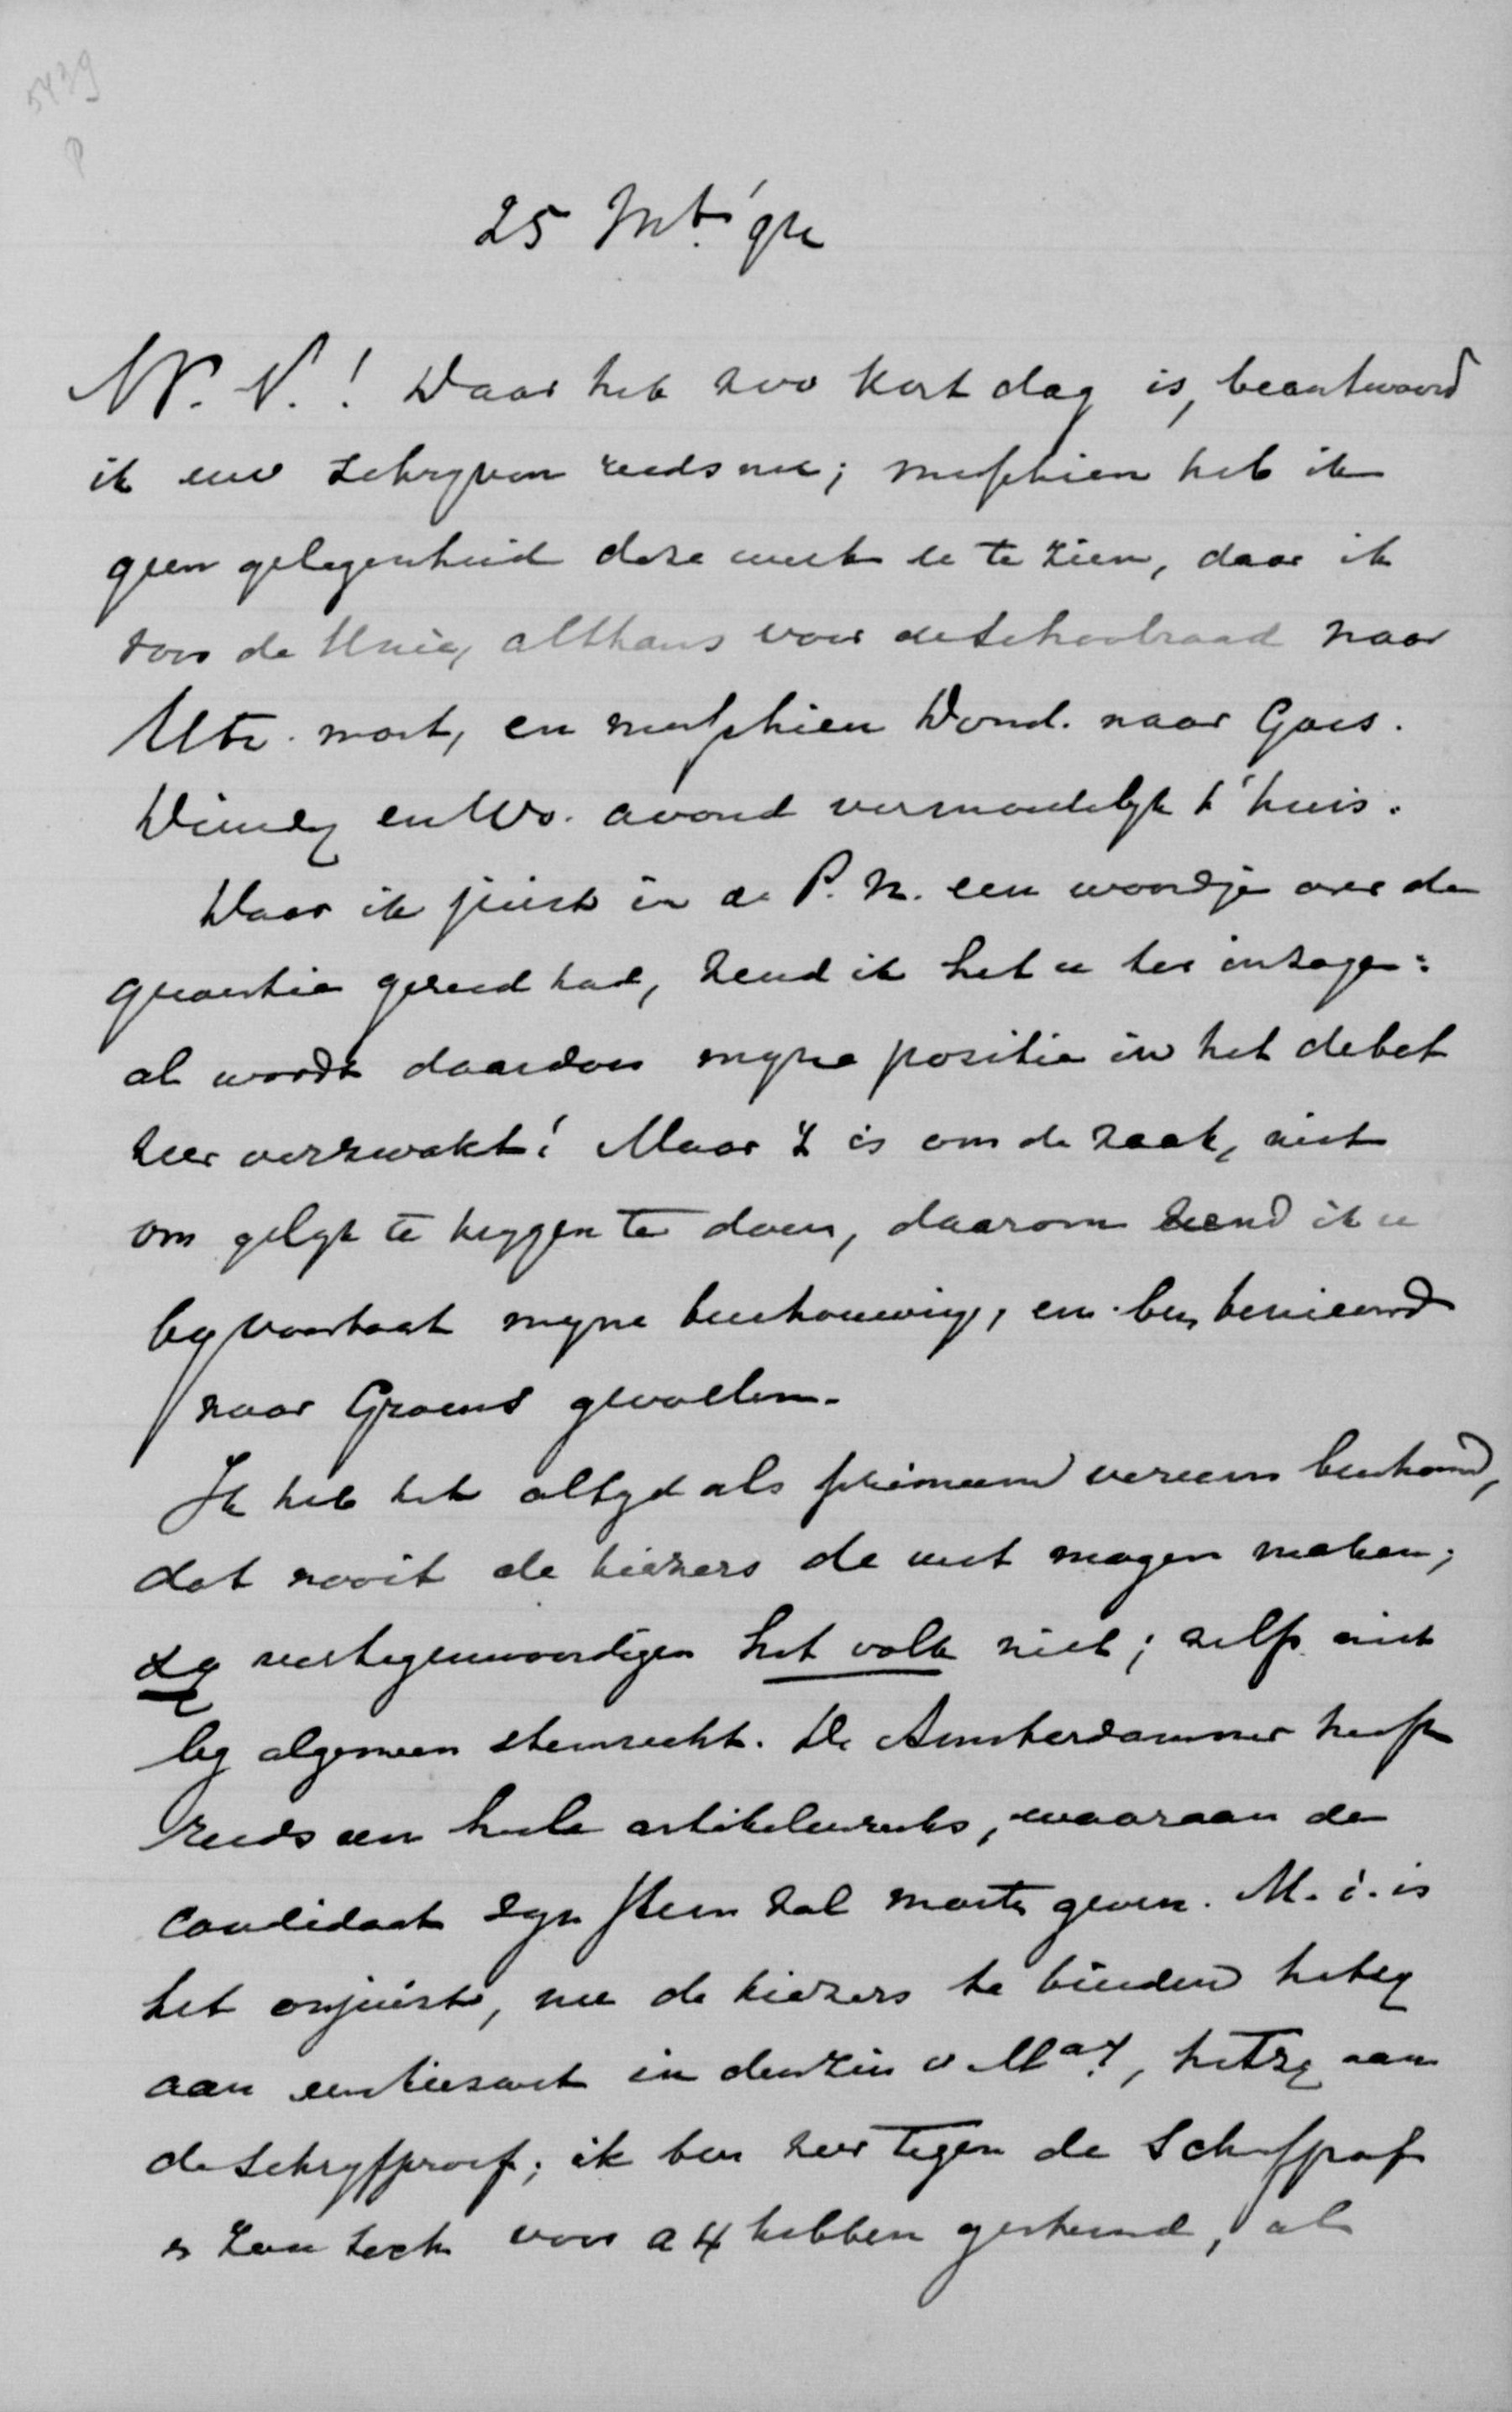 5439
P
25 Mrt '94
N. V.! Daar het zoo kort dag is, beantwoord
ik uw schryven reeds nu; misschien heb ik
geen gelegenheid deze week u te zien, daar ik
voor de Unie, althans voor de Schoolraad naar
Utr. moet, en misschien Dond. naar Goes.
Dinsdg en Wo. avond vermoedelyk t'huis.
Daar ik juist in de P. N. een woordje over de
quaestie gereed had, zend ik het u ter inzage:
al wordt daardoor myne positie in het debat
zeer verzwakt! Maar 't is om de zaak, niet
om gelyk te krygen te doen, daarom zend ik u
by voorbaat myne beschouwing, en ben benieuwd
naar Groens gevoelen.
Ik heb het altyd als primum verum beschouwd,
dat nooit de kiezers de wet mogen maken;
zy vertegenwoordigen het volk niet; zelfs niet
by algemeen stemrecht. De Amsterdammer heeft
reeds een heele artikelenreeks, waaraan de
candidaat zyn stem zal moeten geven. M. i. is
het onjuist, nu de kiezers te binden hetzy
aan een kieswet in den zin v May, hetzy aan
de schryfproef; ik ben zeer tegen de Schryfproef
en zou toch voor a 4 hebben gestemd, als